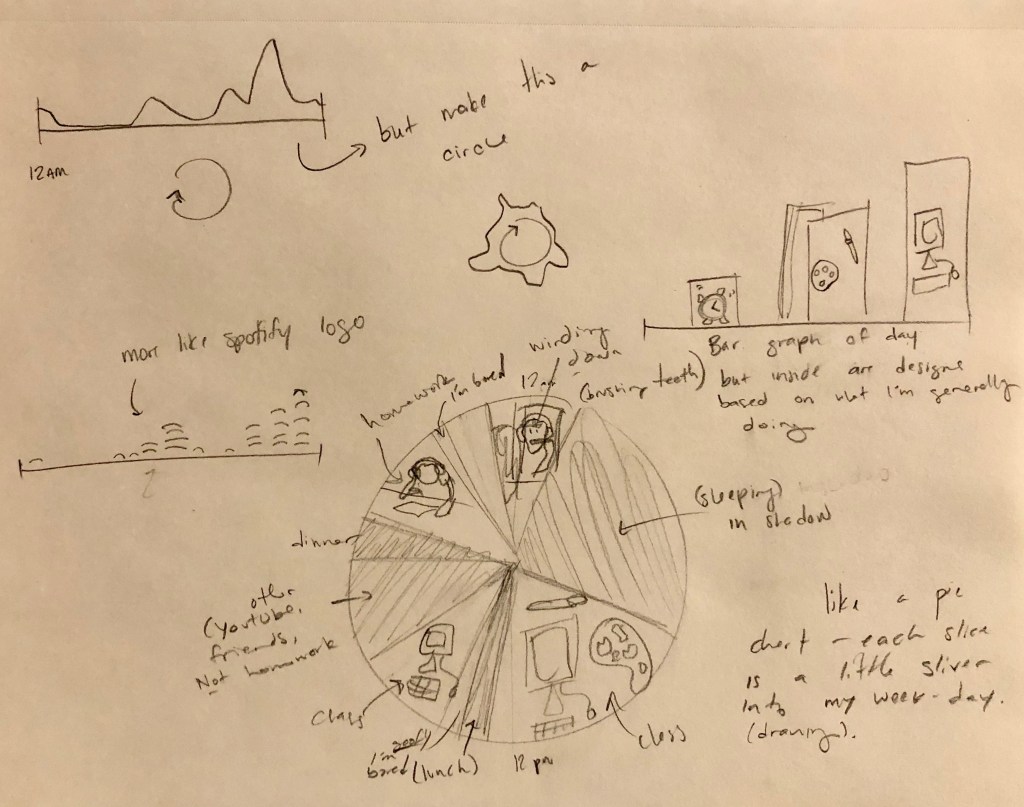 but make this a
circle
12AM
more like spotify logo
Bar graph of day
but inside are designs
based on what I'm generally
doing
winding
down
(brushing teeth)
12am
I'm bored
homework
(sleeping)
in shadow
dinner
other
(youtube,
friends,
Not homework
class
I'm
bored
(lunch)
12 pm
class
like a pie
chart - each slice
is a little sliver
into my week-day.
(drawings).